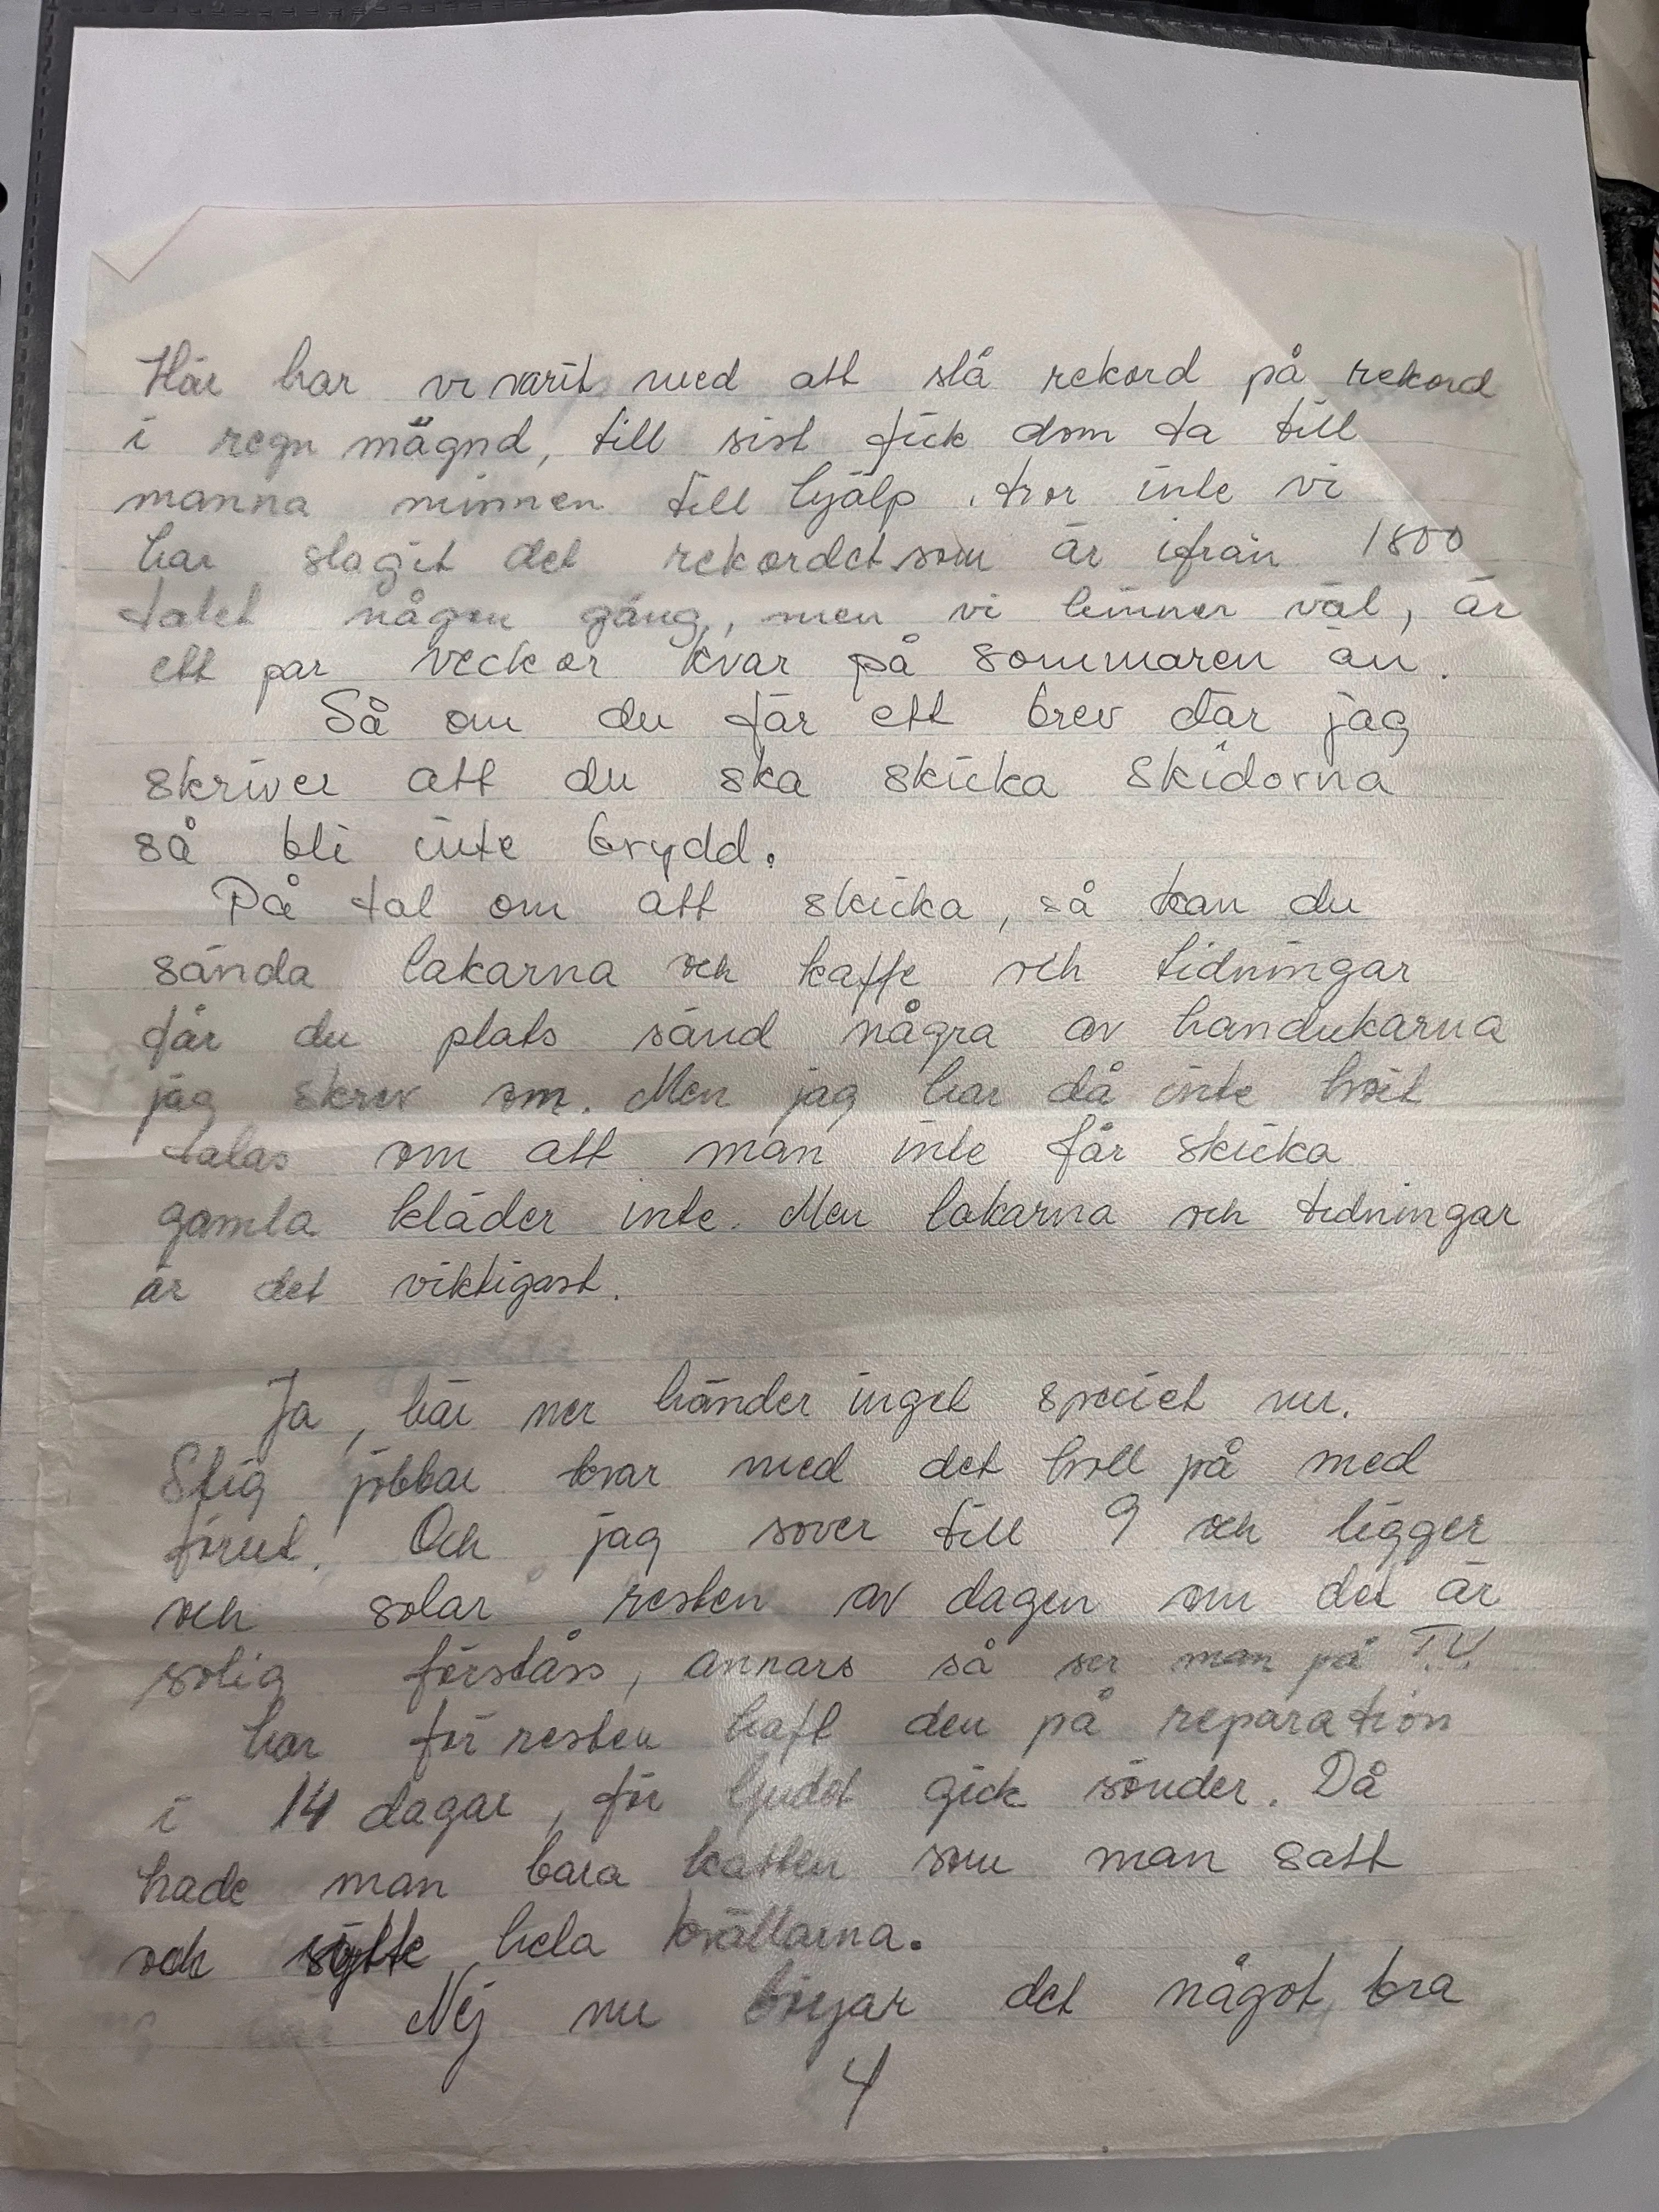 Här har vi varit med att slå rekord på rekord
i regn mägnd, till sist fick dom ta till
manna minnen till hjälp. tror inte vi
har slagit det rekordet som är ifrån 1800
talet någon gång, men vi hinner väl, är
ett par veckor kvar på sommaren än.
Så om du får ett brev där jag
skriver att du ska skicka skidorna
så bli inte brydd.
På tal om att skicka, så kan du
sända lakarna och kaffe och tidningar
får du plats sänd några av handukarna
jag skrev om. Men jag har då inte hört
talas om att man inte får skicka
gamla kläder inte. Men lakarna och tidningar
är det viktigast.
Ja, här ner händer inget speciet nu.
Stig jobbar kvar med det holl på med
förut. Och jag sover till 9 och ligger
och solar resten av dagen om det är
solig förståss, annars så ser man på T.V.
har för resten haft den på reparation
i 14 dagar, för ljudet gick sönder. Då
hade man bara katten som man satt
och hela kvällarna.
Nej nu börjar det något bra
4